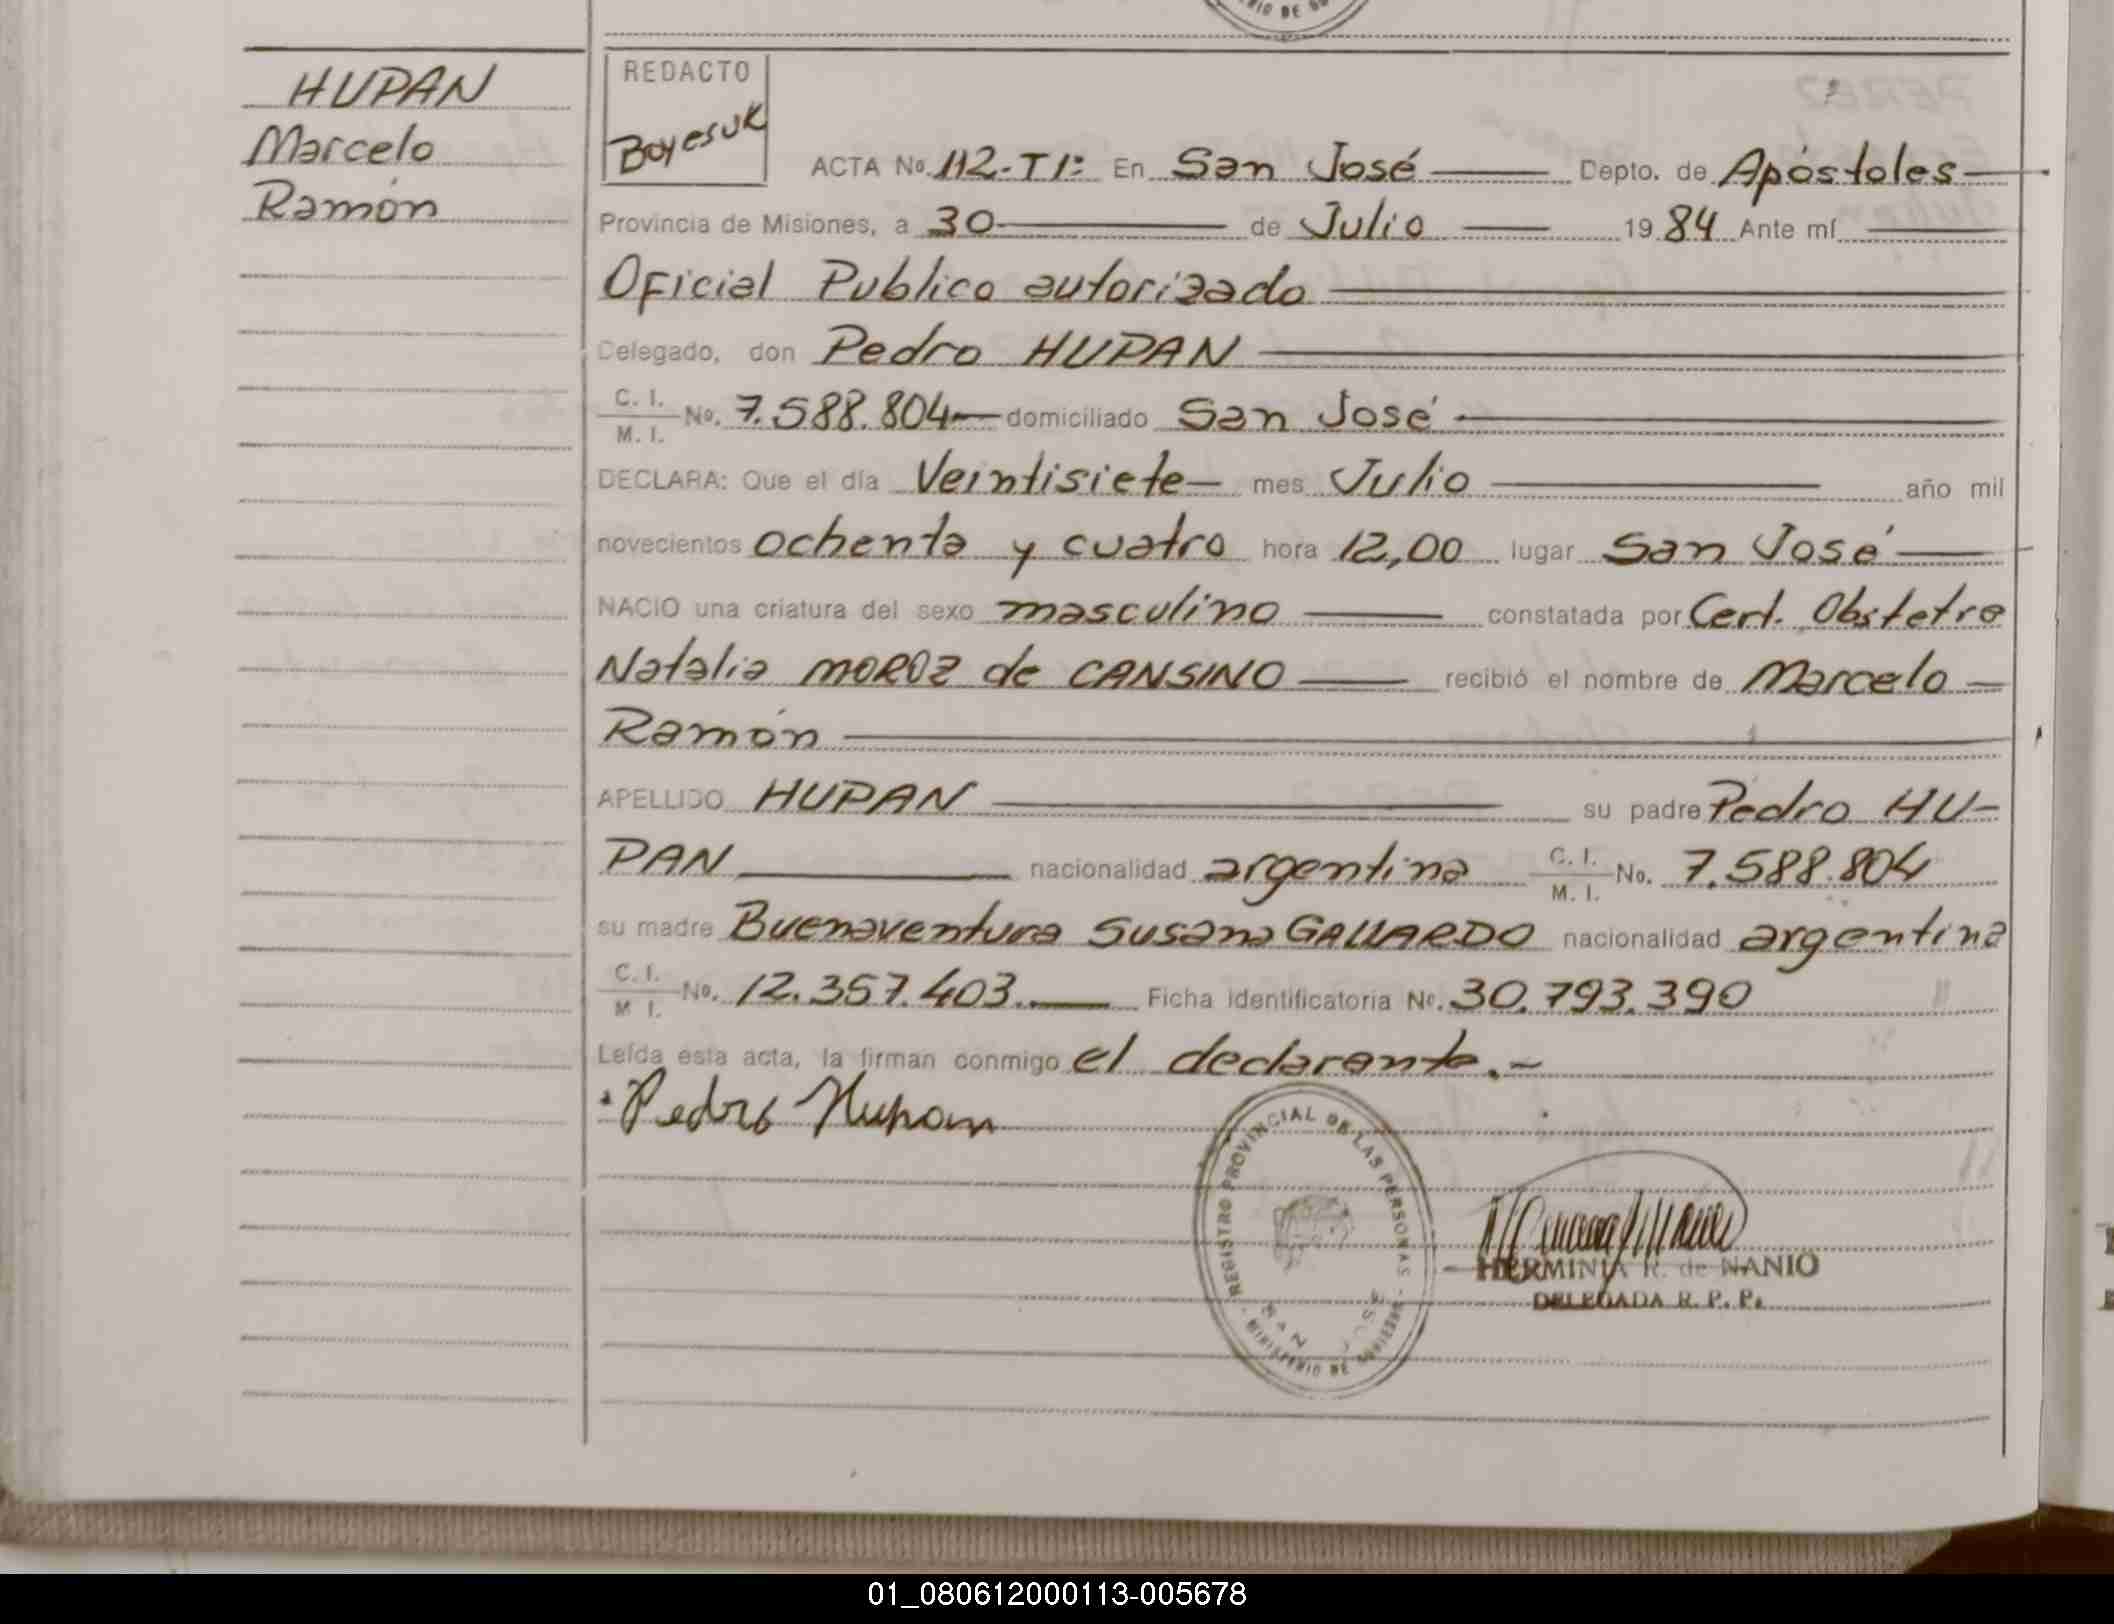 HUPAN
Marcelo
Ramón
REDACTO
Boyesuk
ACTA No. 112-TI: En San José Depto. de Apóstoles
Provincia de Misiones, a 30 de Julio 1984 Ante mí
Oficial Publico autorizado
Delegado, don Pedro HUPAN
C. I. / M. I. No. 7.588.804 domiciliado San José
DECLARA: Que el día Veintisiete mes Julio año mil
novecientos ochenta y cuatro hora 12,00 lugar San José
NACIO una criatura del sexo masculino constatada por Cert. Obstetra
Natalia MOROZ de CANSINO recibió el nombre de Marcelo
Ramón
APELLIDO HUPAN su padre Pedro HU-
PAN nacionalidad argentina C. I. / M. I. No. 7.588.804
su madre Buenaventura Susana GALLARDO nacionalidad argentina
C. I. / M I. No. 12.357.403. Ficha identificatoria No. 30.793.390
Leída esta acta, la firman conmigo el declarante.-
Pedro Hupan
REGISTRO PROVINCIAL DE LAS PERSONAS - MINISTERIO DE GOBIERNO -
SAN JOSE
HERMINIA R. de NANIO
DELEGADA R. P. P.
01_080612000113-005678